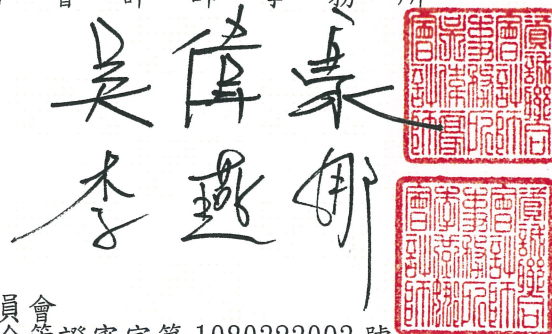 會計師事務所
吳偉豪
資誠聯合
會計師
事務所
吳偉豪
會計師
李燕娜
資誠聯合
會計師
事務所
李燕娜
會計師
員會
金管證審字第 1080323093 號